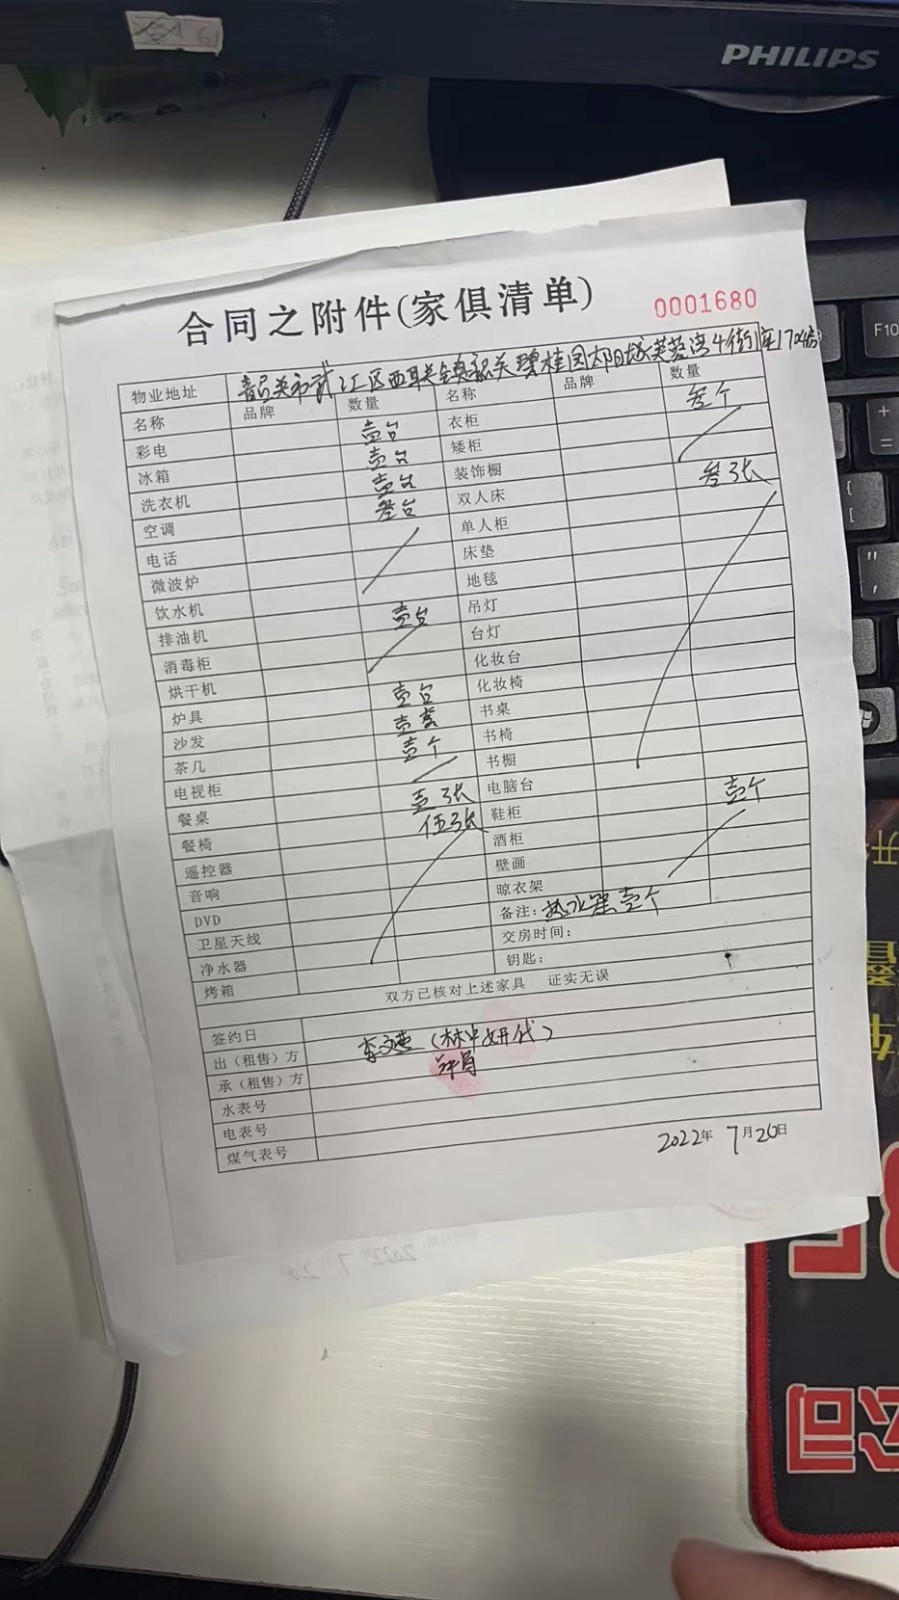 PHILIPS
F10
合同之附件(家俱清单)
0001680
物业地址 韶关市武江区西联镇韶关碧桂园太阳城芙蓉湾4街1座1704房
名称 品牌 数量 名称 品牌 数量
彩电 壹台 衣柜 叁个
冰箱 壹台 矮柜
洗衣机 壹台 装饰橱
空调 叁台 双人床 叁张
电话 单人柜
微波炉 床垫
饮水机 地毯
排油机 壹台 吊灯
消毒柜 台灯
烘干机 化妆台
炉具 壹台 化妆椅
沙发 壹套 书桌
茶几 壹个 书椅
电视柜 书橱
餐桌 壹张 电脑台
餐椅 伍张 鞋柜 壹个
遥控器 酒柜
音响 壁画
DVD 晾衣架
卫星天线 备注：热水器壹个
净水器 交房时间：
烤箱 钥匙：
双方已核对上述家具 证实无误
签约日
出（租售）方 李文燕（林中妍代）
承（租售）方
水表号
电表号
煤气表号
2022年7月20日
公司